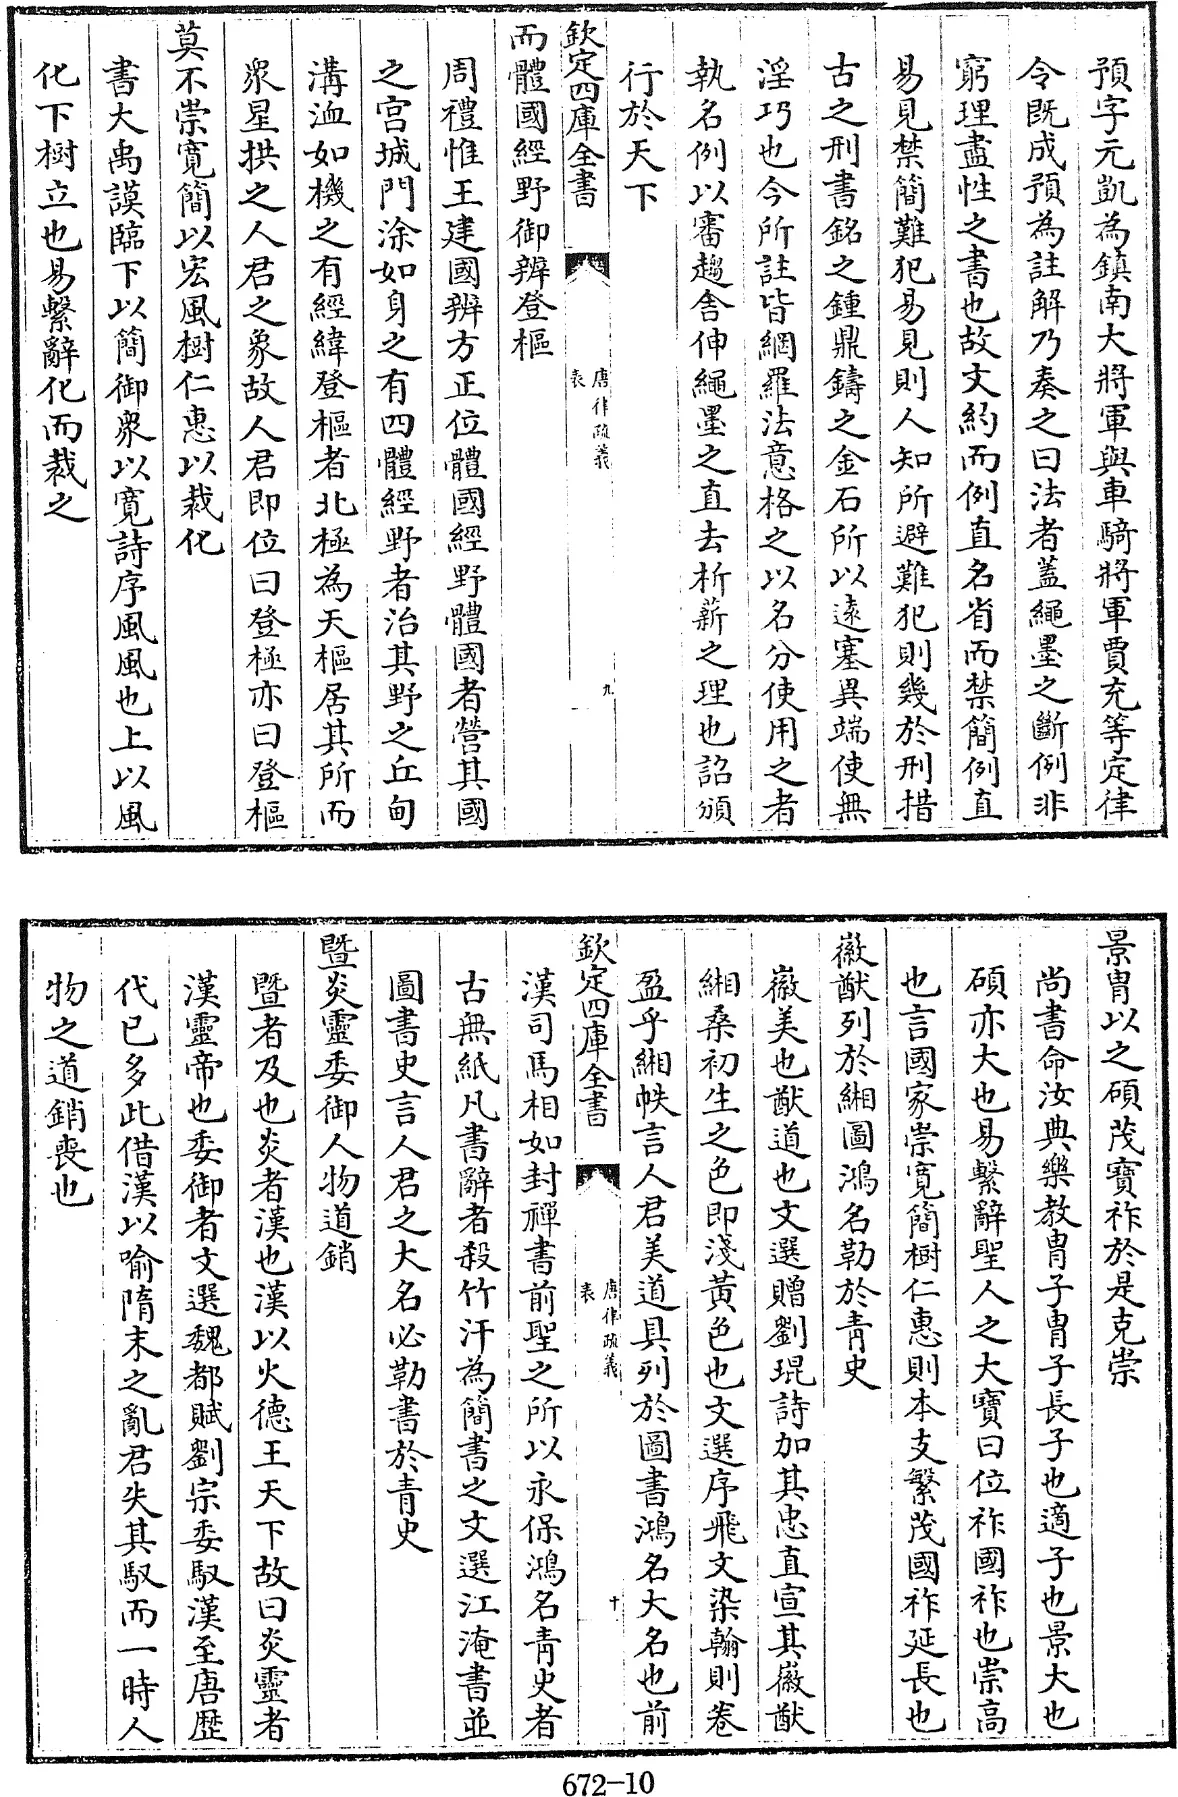 預字元凱為鎮南大將軍與車騎將軍賈充等定律
令既成預為註解乃奏之曰法者蓋繩墨之斷例非
窮理盡性之書也故文約而例直名省而禁簡例直
易見禁簡難犯易見則人知所避難犯則幾於刑措
古之刑書銘之鍾鼎鑄之金石所以遠塞異端使無
淫巧也今所註皆網羅法意格之以名分使用之者
執名例以審趨舎伸繩墨之直去析薪之理也詔頒
行於天下
欽定四庫全書
唐律疏義
表
九
而體國經野御辨登樞
周禮惟王建國辨方正位體國經野體國者營其國
之宫城門涂如身之有四體經野者治其野之丘甸
溝洫如機之有經緯登樞者北極為天樞居其所而
衆星拱之人君之象故人君即位曰登極亦曰登樞
莫不崇寛簡以宏風樹仁惠以裁化
書大禹謨臨下以簡御衆以寛詩序風風也上以風
化下樹立也易繫辭化而裁之
景胄以之碩茂寶祚於是克崇
尚書命汝典樂教胄子胄子長子也適子也景大也
碩亦大也易繫辭聖人之大寶曰位祚國祚也崇高
也言國家崇寛簡樹仁惠則本支繁茂國祚延長也
徽猷列於緗圖鴻名勒於青史
徽美也猷道也文選贈劉琨詩加其忠直宣其徽猷
緗桑初生之色即淺黄色也文選序飛文染翰則卷
盈乎緗帙言人君美道具列於圖書鴻名大名也前
欽定四庫全書
唐律疏義
表
十
漢司馬相如封禪書前聖之所以永保鴻名青史者
古無紙凡書辭者殺竹汗為簡書之文選江淹書並
圖書史言人君之大名必勒書於青史
暨炎靈委御人物道銷
暨者及也炎者漢也漢以火德王天下故曰炎靈者
漢靈帝也委御者文選魏都賦劉宗委馭漢至唐歴
代已多此借漢以喻隋末之亂君失其馭而一時人
物之道銷喪也
672-10